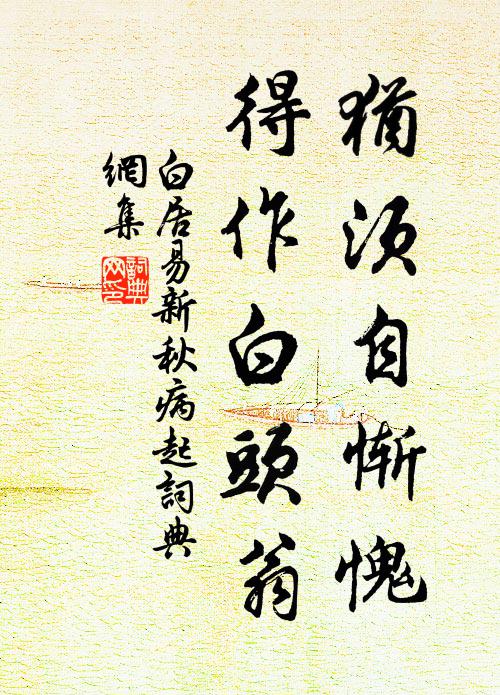 猶須自慚愧
得作白頭翁
白居易新秋病起詞典
網集
詞典
网印